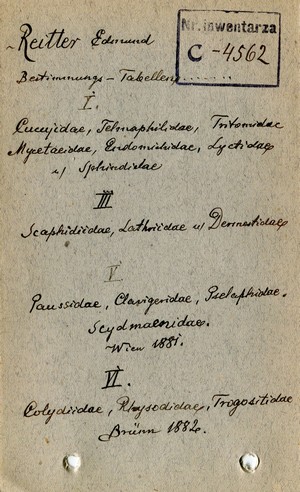 Reitter Edmund
Nr. inwentarza
C-4562
Bestimmungs-Tabellen........
I.
Cucujidae, Telmaphilidae, Tritomidae
Mycetaeidae, Endomichidae, Lyctidae
u/ Sphindidae
III
Scaphidiidae, Lathriidae u/ Dermestidae
V
Paussidae, Clavigeridae, Pselaphidae.
Scydmaenidae.
Wien 1881.
VI.
Colydiidae, Rhysodidae, Trogositidae
Brünn 1882.